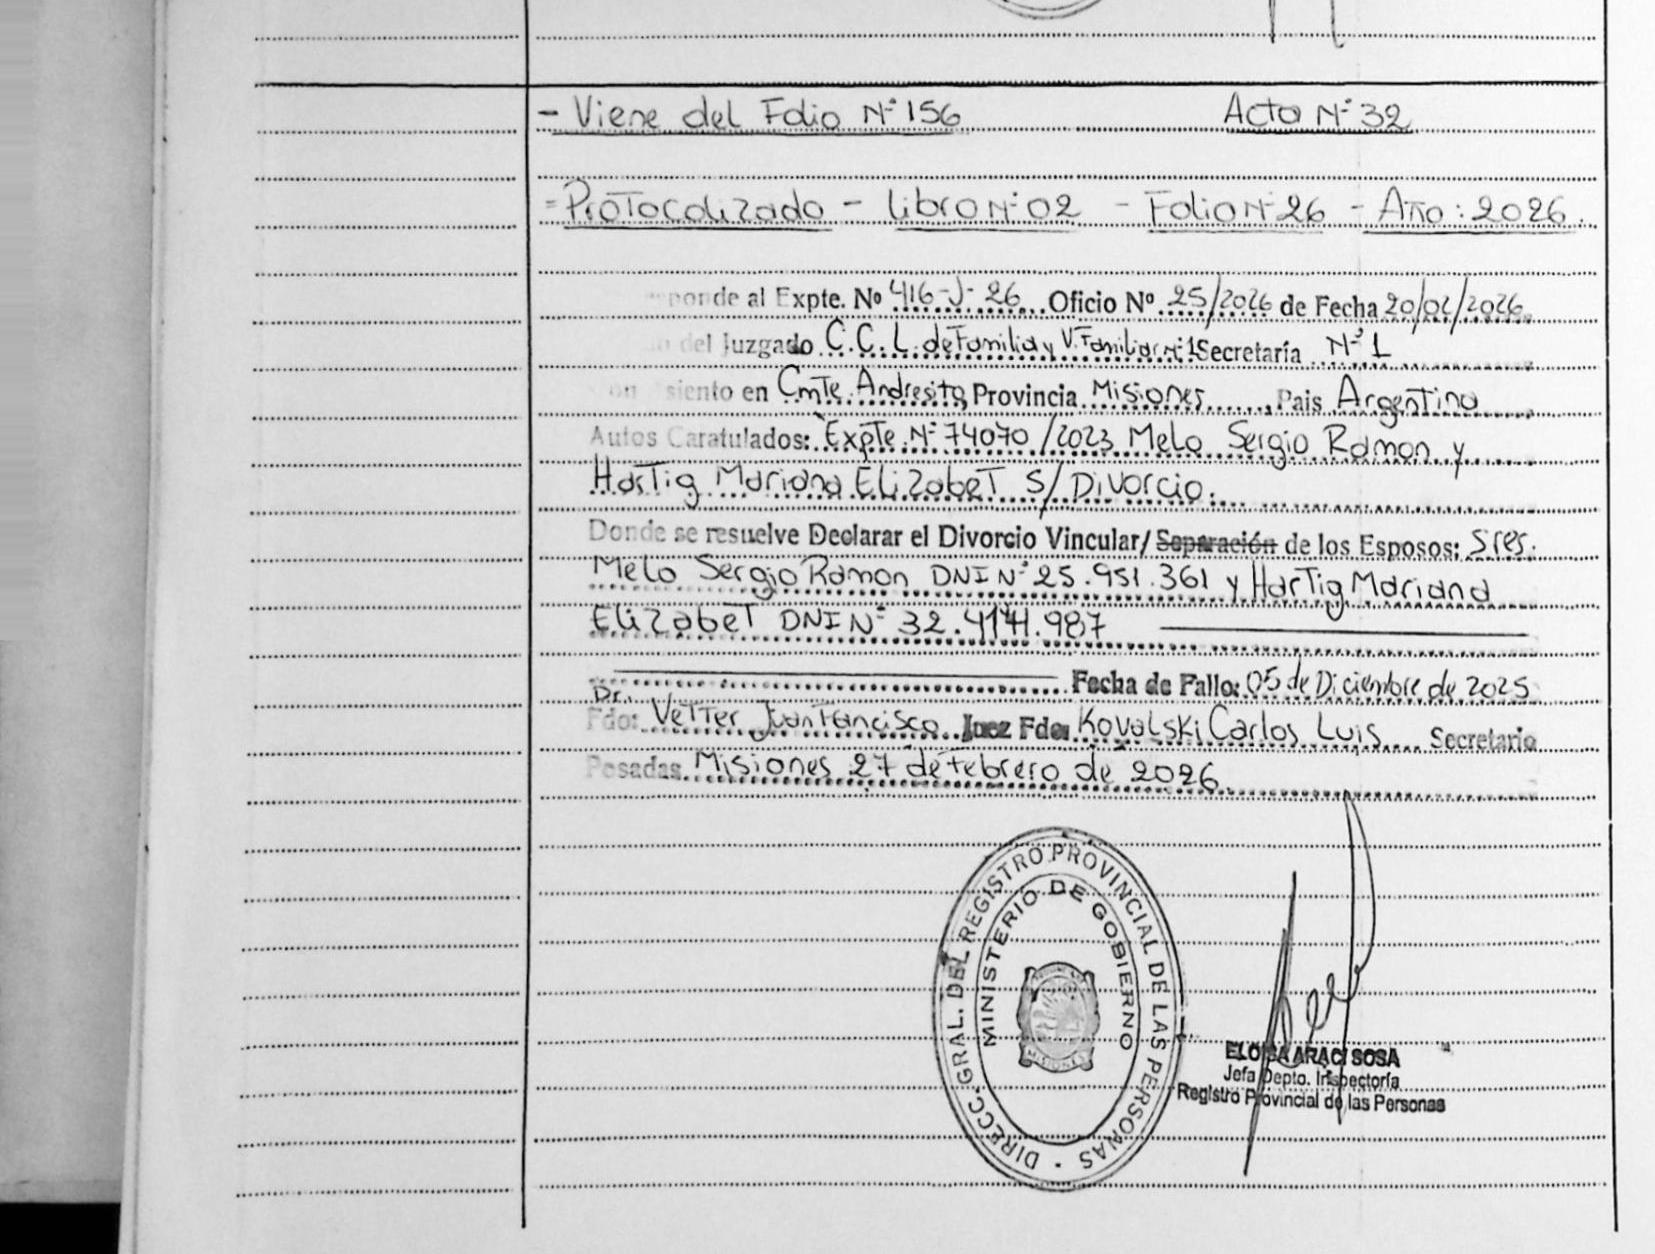 - Viene del Folio N° 156 Acta N° 32
= Protocolizado - Libro N° 02 - Folio N° 26 - Año: 2026.
ponde al Expte. Nº 416-J-26 Oficio Nº 25/2026 de Fecha 20/02/2026
del Juzgado C.C.L. de Familia y V. Familiar N° 1 Secretaría N° 1
siento en Cmte. Andresito, Provincia Misiones, Pais Argentina
Autos Caratulados: Expte. N° 74070/2023 Melo Sergio Ramon y
Hartig Mariana Elizabet S/ Divorcio.
Donde se resuelve Declarar el Divorcio Vincular/ Separación de los Esposos: Sres.
Melo Sergio Ramon DNI N° 25.951.361 y Hartig Mariana
Elizabet DNI N° 987
Fecha de Fallo: 05 de Diciembre de 2025
Dr.
Fdo: Vetter Juan Francisco Juez Fdo: Kovalski Carlos Luis Secretario
Posadas. Misiones 27 de febrero de 2026
DIRECC. GRAL. DEL REGISTRO PROVINCIAL DE LAS PERSONAS
MINISTERIO DE GOBIERNO
MISIONES
ELOISA ARACI SOSA
Jefa Depto. Inspectoría
Registro Provincial de las Personas